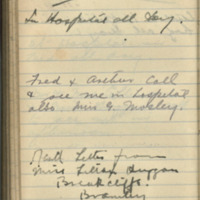 In Hospital all Day.
Fred & Arthur Call
& see me in Hospital
also Miss G. Mosley.
Recd Letter from
Miss Lilian Duggan
Breakcliffe.
Bramley